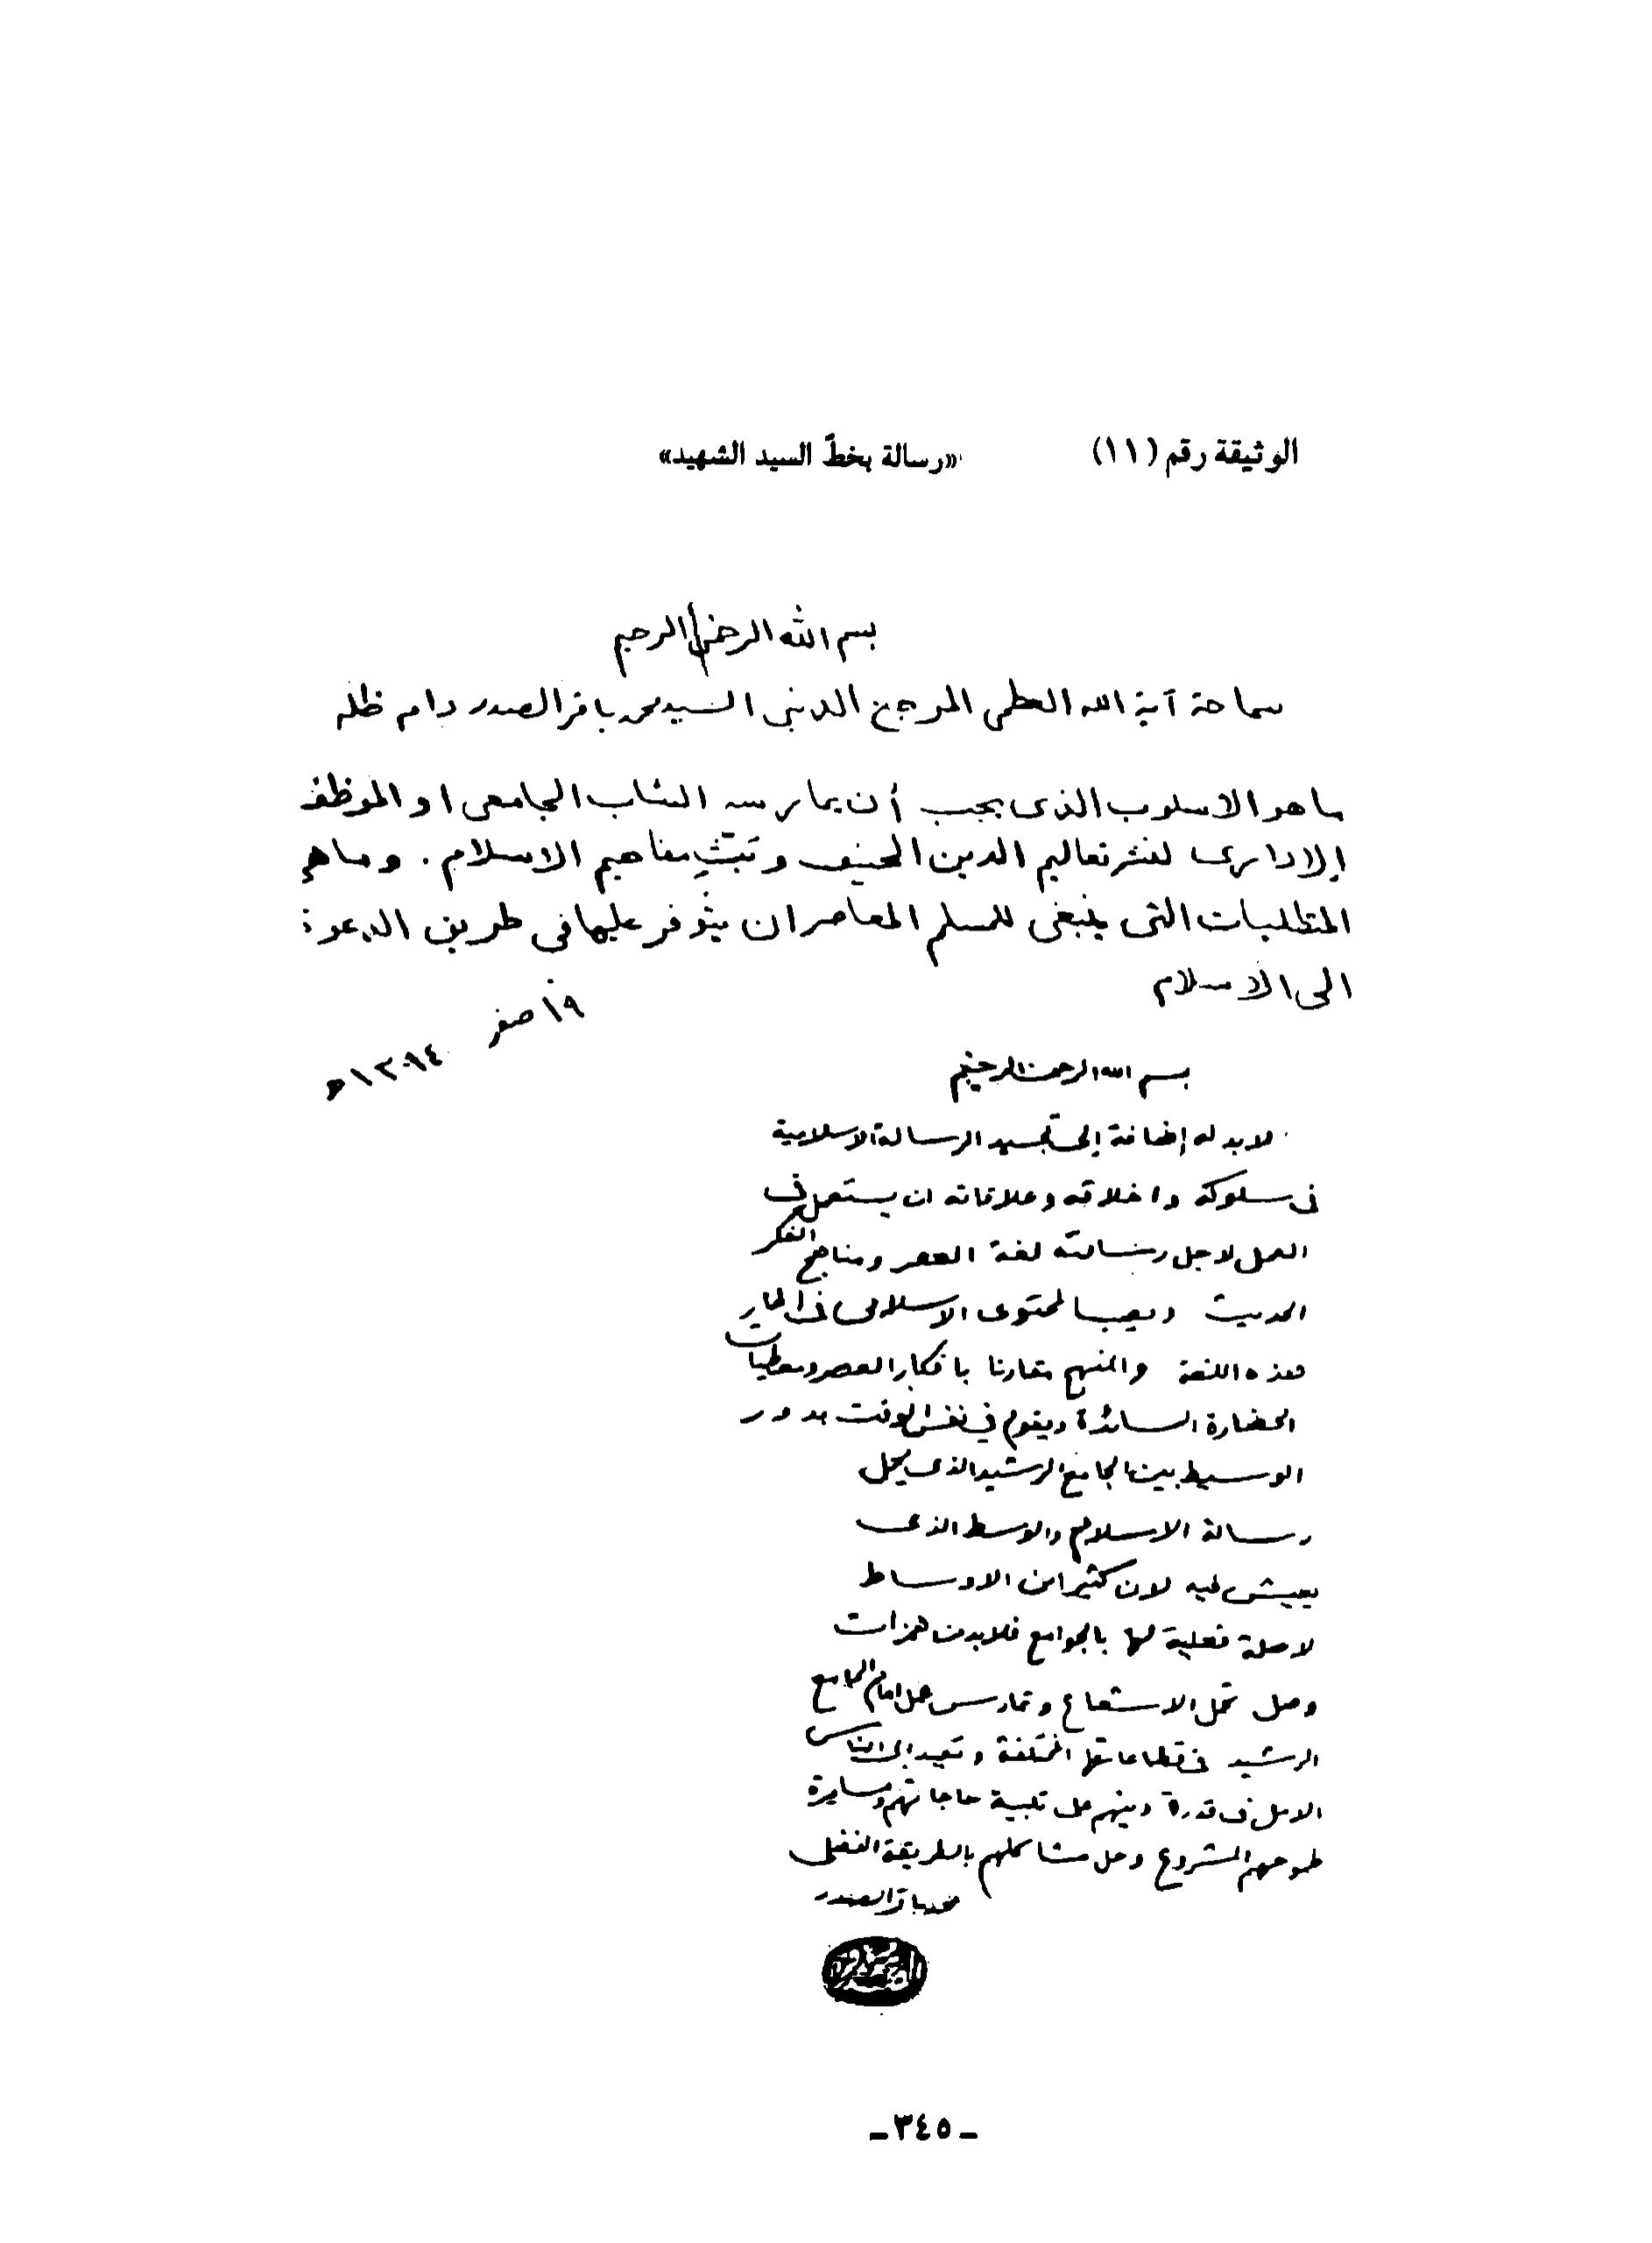 الوثيقة رقم (١١) «رسالة بخطّ السيد الشهيد»
بسم الله الرحمن الرحيم
سماحة آية الله العظمى المرجع الديني السيد محمد باقر الصدر دام ظله
ما هو الاسلوب الذي يجب أن يمارسه الشاب الجامعي او الموظف
الاداري لنشر تعاليم الدين الحنيف و بَثِّ مفاهيم الاسلام . وما هي
المتطلبات التي ينبغي للمسلم المعاصر ان يتوفر عليها في طريق الدعوة
الى الاسلام
١٩ صفر ١٣٩٤ه
بسم الله الرحمن الرحيم
لابد له إضافة إلى تجسيد الرسالة الاسلامية
في سلوكه واخلاقه وعلاقاته ان يستعمل في
العمل لاجل رسالته لغة العصر ومناهج الفكر
الحديث ويصب المحتوى الاسلامي في اطار
هذه اللغة والمنهج مقارنا بافكار العصر ومعطيات
الحضارة السائدة ويقوم في نفس الوقت بدور
الوسيط بين الجامع الرشيد الذي يحمل
رسالة الاسلام والوسط الذي
يعيش فيه لان كثيرا من الاوساط
لا صلة فعلية لها بالجوامع فلابد من همزات
وصل تحمل الاشعاع وتمارس عمل امام الجامع
الرشيد في قطاعاتها المختلفة وتعيد إلى الناس
الامل في قدرة دينهم على تلبية حاجاتهم ومسايرة
طموحهم المشروع وحل مشاكلهم بالطريقة الفضلى
محمد باقر الصدر
- ٣٤٥ -